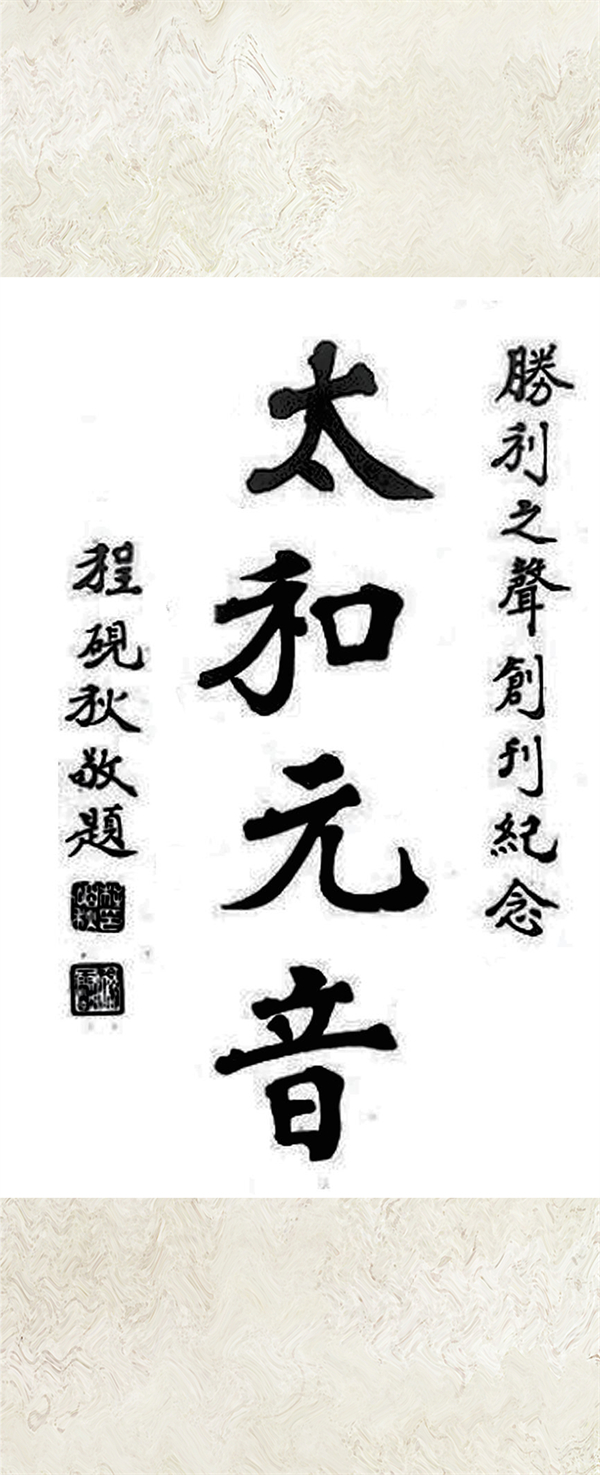 勝利之聲創刊紀念
太和元音
程硯秋敬題